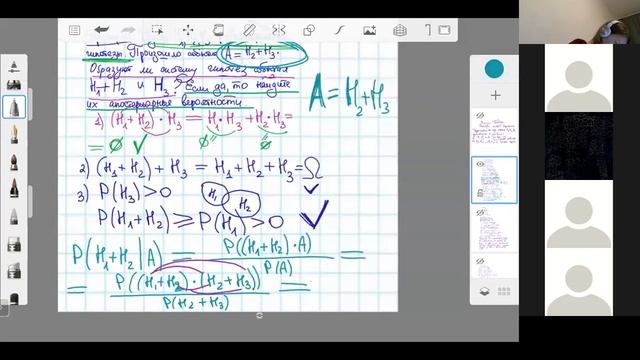 гипотезы. Произошло событие A = H₂+H₃.
Образуют ли систему гипотез события
H₁+H₂ и H₃? Если да, то найдите
их апостериорные вероятности
A = H₂+H₃
1) (H₁+H₂)·H₃ = H₁·H₃ + H₂·H₃ =
= ∅ ✓ ∅ ∅
2) (H₁+H₂) + H₃ = H₁+H₂+H₃ = Ω
3) P(H₃) > 0 H₁ H₂ ✓
P(H₁+H₂) ⩾ P(H₁) > 0 ✓
P(H₁+H₂|A) = P((H₁+H₂)·A) / P(A) =
= P((H₁+H₂)·(H₂+H₃)) / P(H₂+H₃) =